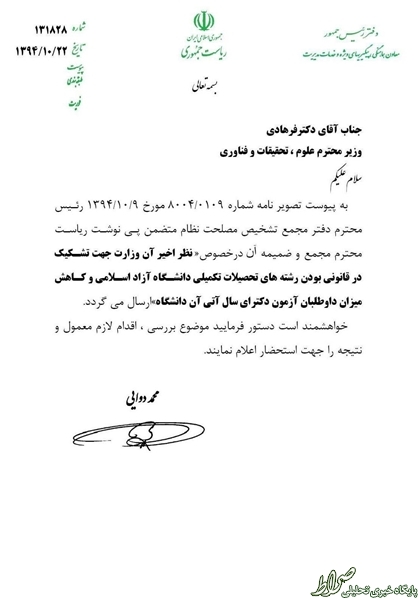 شماره ۱۳۱۸۲۸
تاریخ ۱۳۹۴/۱۰/۲۲
پیوست
طبقه‌بندی
فوریت
جمهوری اسلامی ایران
ریاست جمهوری
دفتر رئیس جمهور
بسمه تعالی
جناب آقای دکترفرهادی
وزیر محترم علوم ، تحقیقات و فناوری
سلام علیکم
به پیوست تصویر نامه شماره ۸۰۰۴/۰۱۰۹ مورخ ۱۳۹۴/۱۰/۹ رئیس
محترم دفتر مجمع تشخیص مصلحت نظام متضمن پی نوشت ریاست
محترم مجمع و ضمیمه آن درخصوص« نظر اخیر آن وزارت جهت تشکیک
در قانونی بودن رشته های تحصیلات تکمیلی دانشگاه آزاد اسلامی و کاهش
میزان داوطلبان آزمون دکترای سال آتی آن دانشگاه»ارسال می گردد.
خواهشمند است دستور فرمایید موضوع بررسی ، اقدام لازم معمول و
نتیجه را جهت استحضار اعلام نمایند.
محمد دوایی
صراط
پایگاه خبری تحلیلی